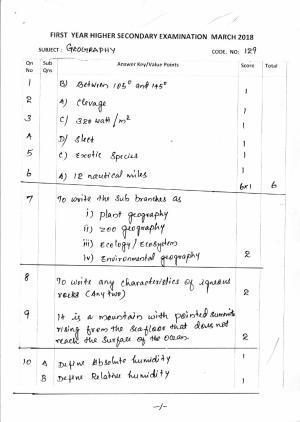 FIRST YEAR HIGHER SECONDARY EXAMINATION MARCH 2018
SUBJECT: GEOGRAPHY CODE. NO: 129
Qn No Sub Qns Answer Key/Value Points Score Total
1 B) Between 105° and 145° 1
2 A) Clevage 1
3 C) 320 watt/m² 1
4 D) Sleet 1
5 C) Exotic Species 1
6 A) 12 nautical miles 1
6x1 6
7 To write the sub branches as
i) plant geography
ii) zoo geography
iii) Ecology / Ecosystem
iv) Environmental geography 2
8 To write any characteristics of igneous
rocks (Any two) 2
9 It is a mountain with pointed summits
rising from the seafloor that does not
reach the surface of the ocean. 2
10 A Define Absolute humidity 1
B Define Relative humidity 1
-1-